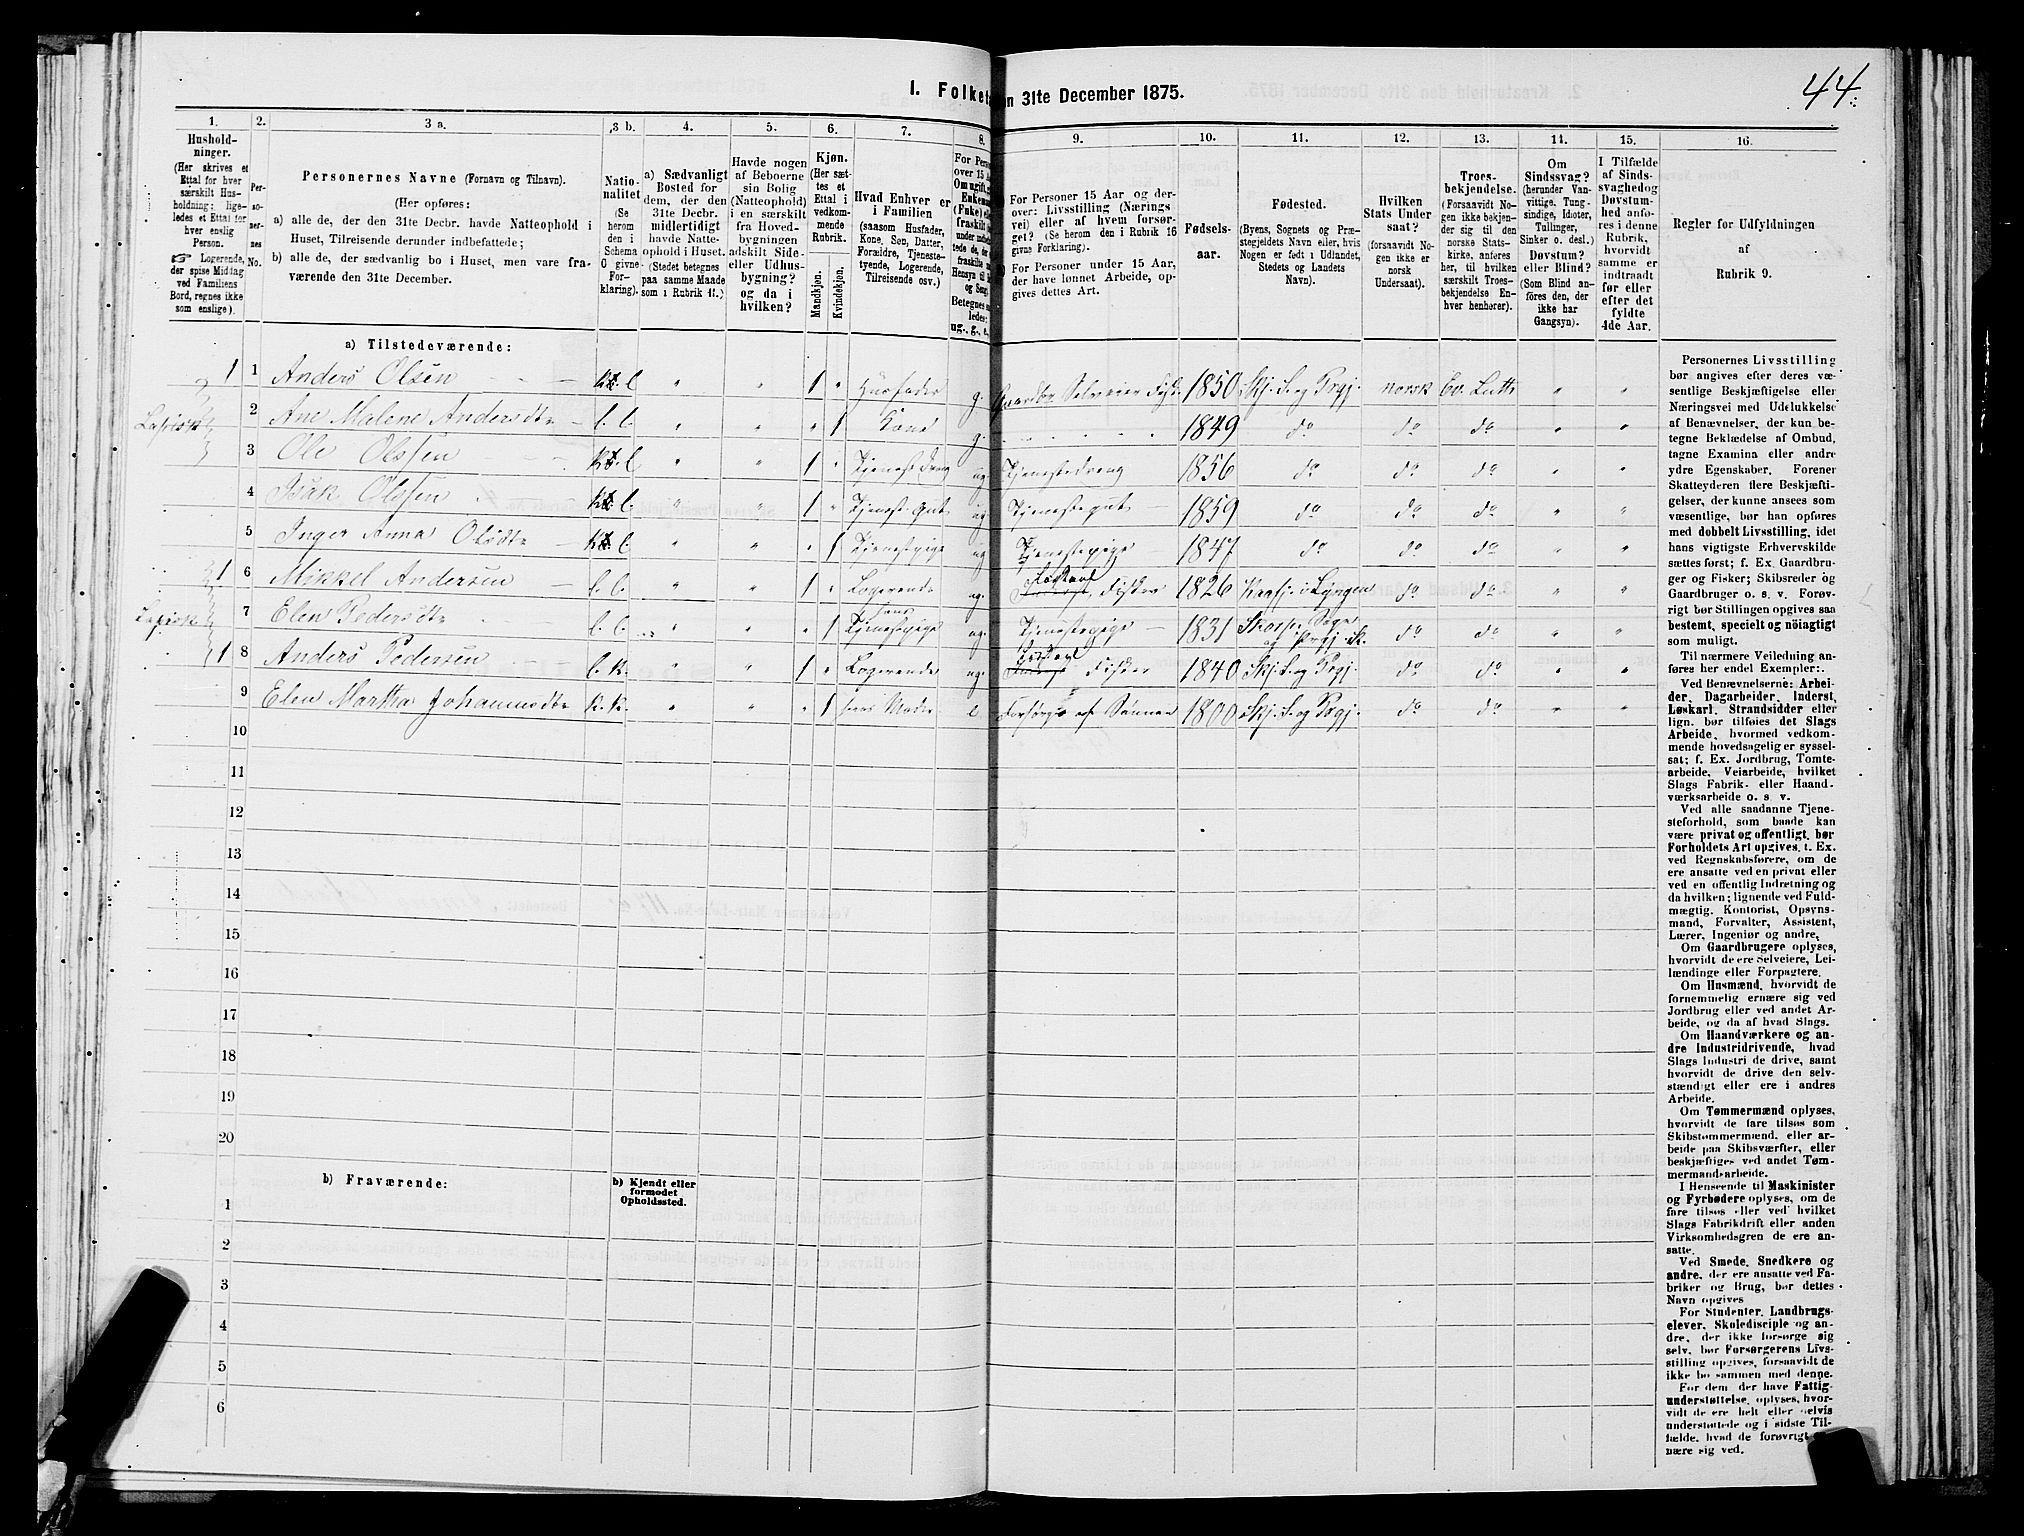 44
1. Folket n 31te December 1875.
1. 2. 3 a. 3 b. 4. 5. 6. 7. 8. 9. 10. 11. 12. 13. 14. 15. 16.
Hushold-
ninger.
(Her skrives et
Ettal for hver
særskilt Hus-
holdning; lige-
ledes et Ettal for
hver enslig
Person.
☞ Logerende,
der spise Middag
ved Familiens
Bord, regnes ikke
som enslige).
Per-
so-
ner-
nes
No.
Personernes Navne (Fornavn og Tilnavn).
(Her opføres:
a) alle de, der den 31te Decbr. havde Natteophold i
Huset, Tilreisende derunder indbefattede;
b) alle de, der sædvanlig bo i Huset, men vare fra-
værende den 31te December.
Natio-
nalitet
(Se
herom
den i
Schema
O givne
For-
klaring).
a) Sædvanligt
Bosted for
dem, der den
31te Decbr.
midlertidigt
havde Natte-
ophold i Huset.
(Stedet betegnes
paa samme Maade
som i Rubrik 11.)
Havde nogen
af Beboerne
sin Bolig
(Natteophold)
i en særskilt
fra Hoved-
bygningen
adskilt Side-
eller Udhus-
bygning?
og da i
hvilken?
Kjøn.
(Her sæt-
tes et
Ettal i
vedkom-
mende
Rubrik.
Mandkjøn.
Kvindekjøn.
Hvad Enhver er
i Familien
(saasom Husfader,
Kone, Søn, Datter,
Forældre, Tjeneste-
tyende, Logerende,
Tilreisende osv.)
For Personer 15 Aar og der-
over: Livsstilling (Nærings-
vei) eller af hvem forsør-
get? (Se herom den i Rubrik 16
givne Forklaring.)
For Personer under 15 Aar,
der have lønnet Arbeide, op-
gives dettes Art.
Fødsels-
aar.
Fødested.
(Byens, Sognets og Præ-
stegjeldets Navn eller, hvis
Nogen er født i Udlandet,
Stedets og Landets
Navn).
Hvilken
Stats Under
saat?
(forsaavidt No-
gen ikke er
norsk
Undersaat).
Troes-
bekjendelse.
(Forsaavidt No-
gen ikke bekjen-
der sig til den
norske Stats-
kirke, anføres
her, til hvilken
særskilt Troes-
bekjendelse En-
hver henhører).
Om
Sindssvag?
(herunder Van-
vittige, Tung-
sindige, Idioter,
Tullinger,
Sinker o. desl.)
Døvstum?
eller Blind?
(Som Blind an-
føres den, der
ikke har
Gangsyn).
I Tilfælde
af Sinds-
svaghed og
Døvstum-
hed anfø-
res i denne
Rubrik,
hvorvidt
samme er
indtraadt
før eller
efter det
fyldte
4de Aar.
Regler for Udfyldningen
af
Rubrik 9.
a) Tilstedeværende:
1 1 Anders Olsen l. " " 1 " Husfader g. Gaardbr. Selveier Fisk. 1850 Skj. S. og Prgj. norsk Ev. Luth " "
2 Ane Malene Andersdtr l. l. " " " 1 Kone g. 1849 do do do " "
3 Ole Olssen l " " 1 " Tjenestedreng ug. Tjenestedreng 1856 do do do " "
4 Isak Olssen l. " " 1 " Tjenestegut ug Tjenestegut 1859 do do do " "
5 Inger Anna Olsdtr l. " " " 1 Tjenestepige ug Tjenestepige 1847 do do do " "
1 6 Mikkel Andersen l. l. " " 1 " Logerende ug. Fisker 1826 Kaafj. i Lyngen do do " "
7 Elen Pedersdtr l. l. " " " 1 hans Tjenestepige ug. Tjenestepige 1831 do do " "
1 8 Anders Pedersen l. k. " " 1 " Logerende ug. Fisker 1840 Skj. S. og Prgj. do do " "
9 Elen Martha Johannesdtr k. k. " " " 1 hans Moder e. Forsørges af Sønnen 1800 Skj. S. og Prgj. do do " "
10
11
12
13
14
15
16
17
18
19
20
b) Fraværende:
b) Kjendt eller
formodet
Opholdssted.
1
2
3
4
5
6
Personernes Livsstilling
bør angives efter deres væ-
sentlige Beskjæftigelse eller
Næringsvei med Udelukkelse
af Benævnelser, der kun be-
tegne Beklædelse af Ombud,
tagne Examina eller andre
ydre Egenskaber. Forener
Skatteyderen flere Beskjæfti-
gelser, der kunne ansees som
væsentlige, bør han opføres
med dobbelt Livsstilling, idet
hans vigtigste Erhvervskilde
sættes først; f. Ex. Gaardbru-
ger og Fisker; Skibsreder og
Gaardbruger o. s. v. Forøv-
rigt bør Stillingen opgives saa
bestemt, specielt og nöiagtigt
som muligt.
Til nærmere Veiledning an-
føres her endel Exempler:
Ved Benævnelserne: Arbei-
der, Dagarbeider, Inderst,
Løskarl, Strandsidder eller
lign. bør tilføies det Slags
Arbeide, hvormed vedkom-
mende hovedsagelig er syssel-
sat; f. Ex. Jordbrug, Tomte-
arbeide, Veiarbeide, hvilket
Slags Fabrik- eller Haand
værksarbeide o. s. v.
Ved alle saadanne Tjene-
steforhold, som baade kan
være privat og offentligt, bør
Forholdets Art opgives, t. Ex.
ved Regnskabsførere, om de
ere ansatte ved en privat eller
ved en offentlig Indretning og
da hvilken; lignende ved Fuld-
mægtig, Kontorist, Opsyns-
mand, Forvalter, Assistent,
Lærer, Ingeniør og andre.
Om Gaardbrugere oplyses,
hvorvidt de ere Selveiere, Lei-
lændinge eller Forpagtere.
Om Husmænd, hvorvidt de
fornemmelig ernære sig ved
Jordbrug eller ved andet Ar-
beide, og da af hvad Slags.
Om Haandværkere og an-
dre Industridrivende, hvad
Slags Industri de drive, samt
hvorvidt de drive den selv-
stændigt eller ere i andres
Arbeide.
Om Tømmermænd oplyses,
hvorvidt de fare tilsøs som
Skibstømmermænd, eller ar-
beide paa Skibsværfter, eller
beskjæftiges ved andet Tøm-
mermandsarbeide.
I Henseende til Maskinister
og Fyrbødere oplyses, om de
fare tilsøs eller ved hvilket
Slags Fabrikdrift eller anden
Virksomhedsgren de ere an-
satte.
Ved Smede, Snedkere og
andre, der ere ansatte ved Fa-
briker og Brug, bør dettes
Navn opgives
For Studenter, Landbrugs-
elever, Skoledisciple og an-
dre, der ikke forsørge sig
selv, bør Forsørgerens Livs-
stilling opgives, forsaavidt de
ikke bo sammen med denne.
For dem, der have Fattig-
understøttelse, oplyses, hvor-
vidt de ere helt eller delvis
understøttede og i sidste Til-
fælde, hvad de forøvrigt
nære sig ved.